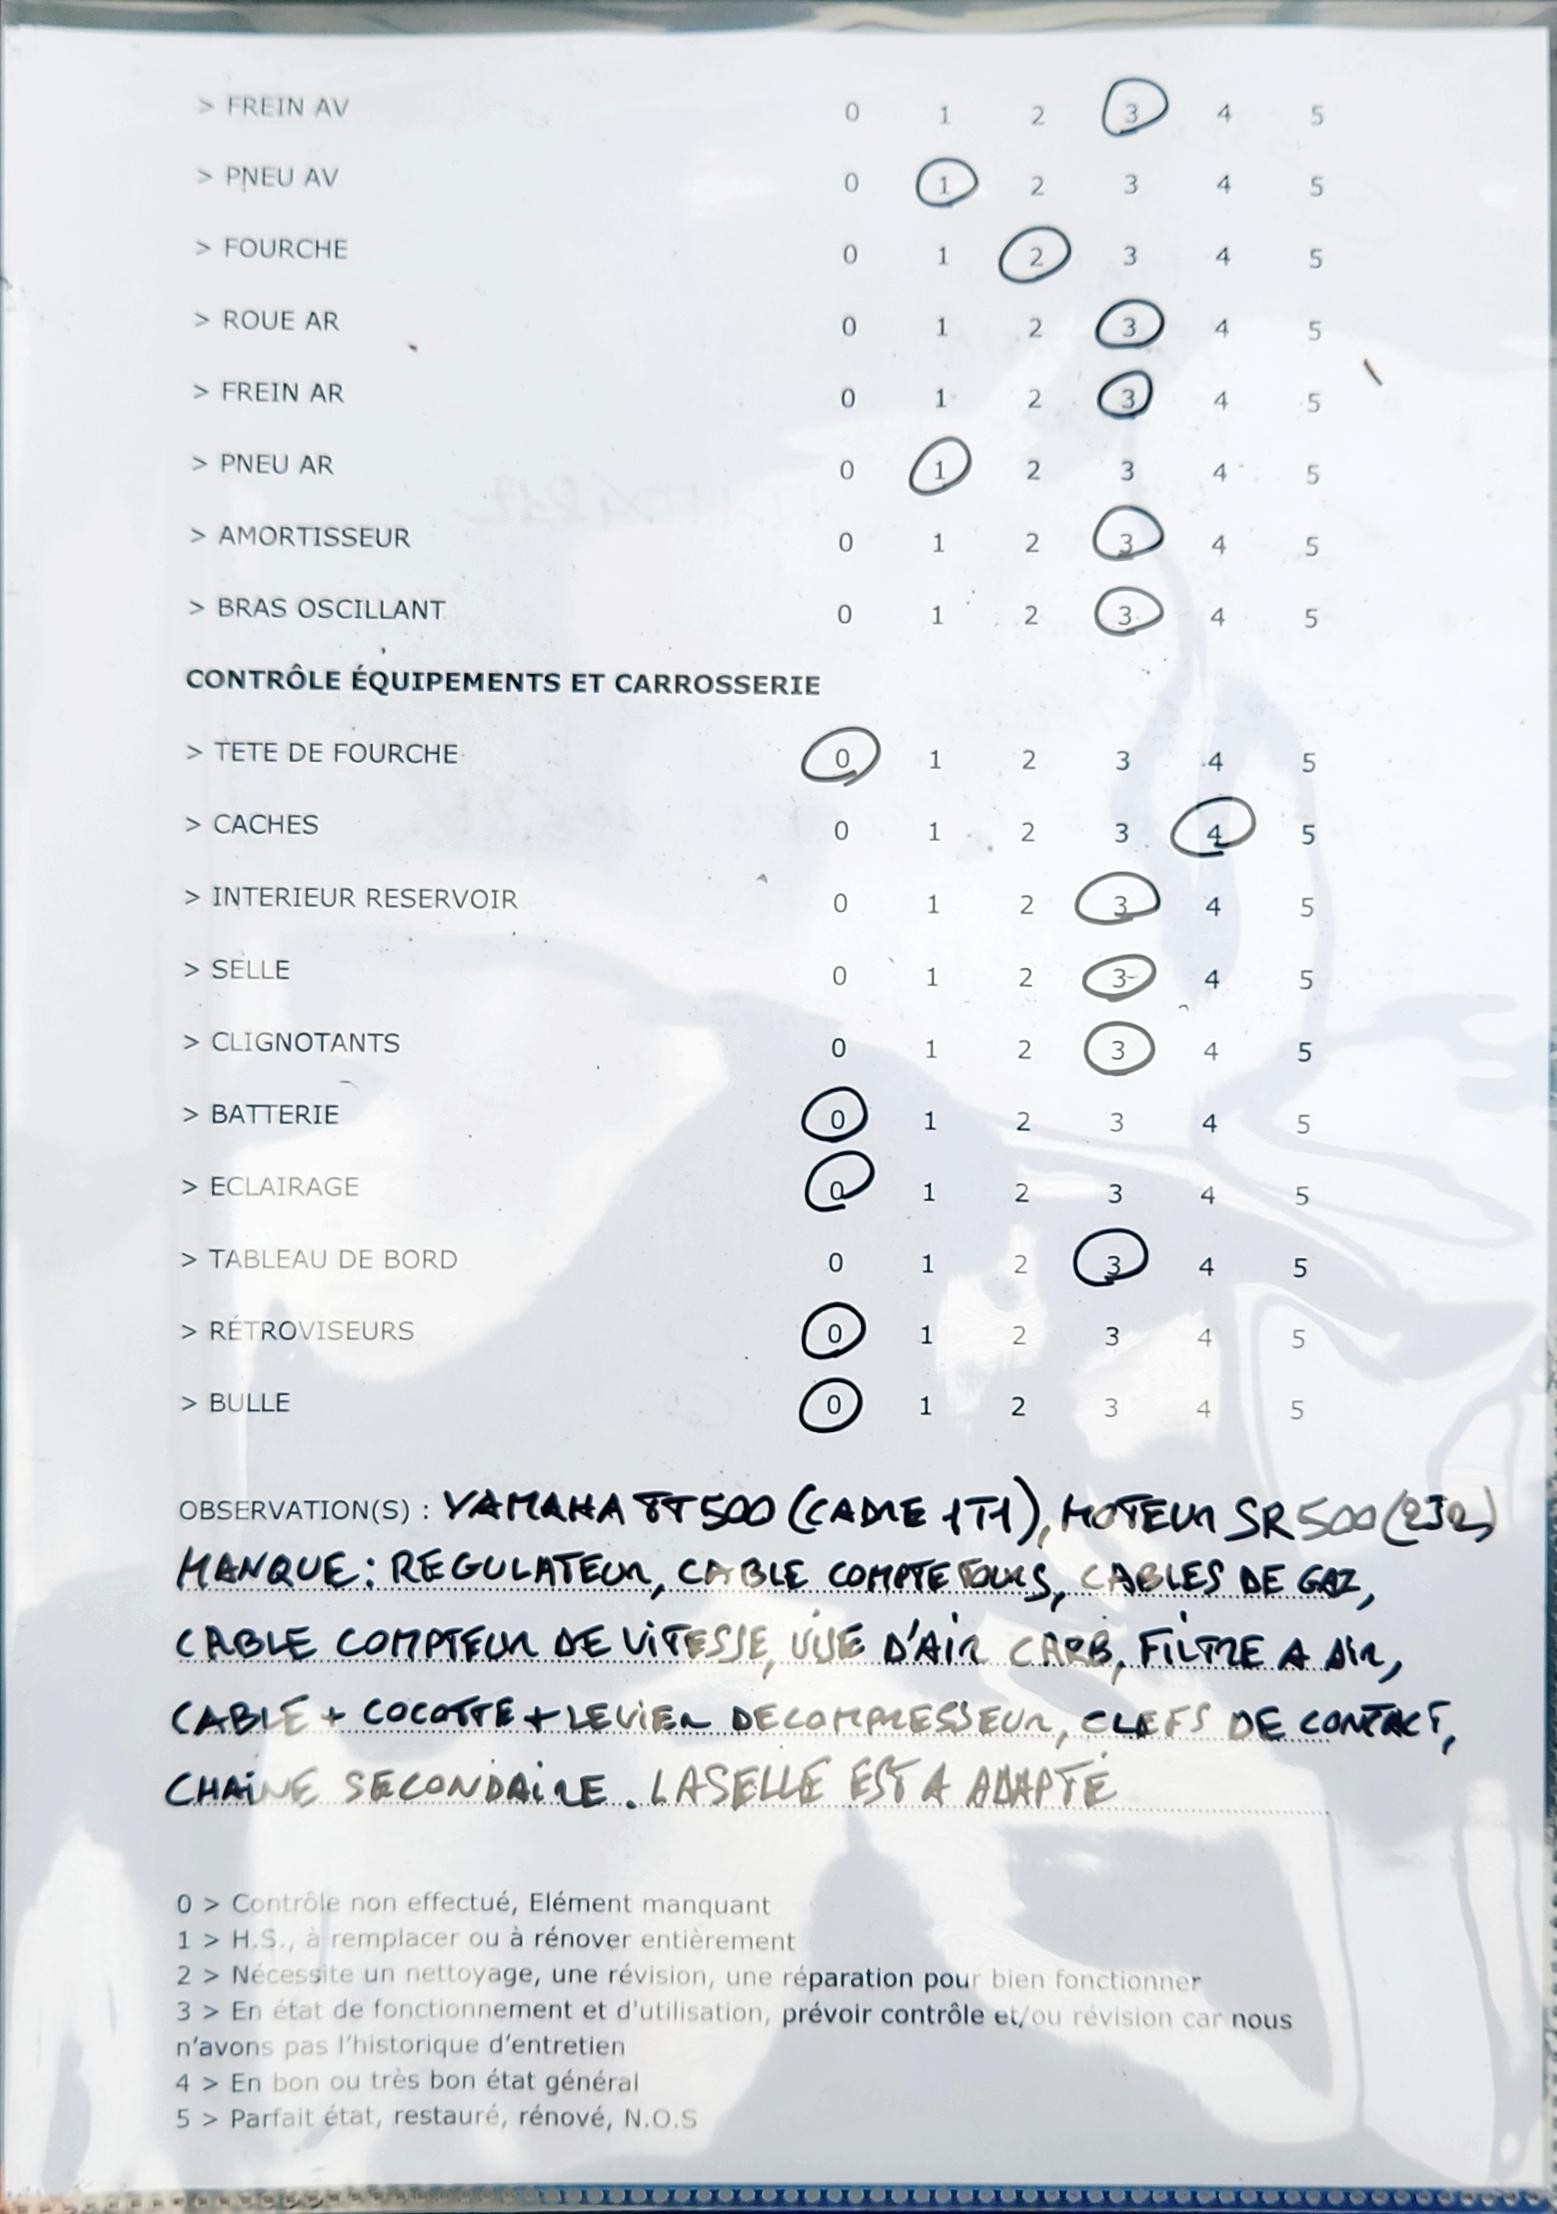 > FREIN AV 0 1 2 3 4 5
> PNEU AV 0 1 2 3 4 5
> FOURCHE 0 1 2 3 4 5
> ROUE AR 0 1 2 3 4 5
> FREIN AR 0 1 2 3 4 5
> PNEU AR 0 1 2 3 4 5
> AMORTISSEUR 0 1 2 3 4 5
> BRAS OSCILLANT 0 1 2 3 4 5
CONTRÔLE ÉQUIPEMENTS ET CARROSSERIE
> TETE DE FOURCHE 0 1 2 3 4 5
> CACHES 0 1 2 3 4 5
> INTERIEUR RESERVOIR 0 1 2 3 4 5
> SELLE 0 1 2 3 4 5
> CLIGNOTANTS 0 1 2 3 4 5
> BATTERIE 0 1 2 3 4 5
> ECLAIRAGE 0 1 2 3 4 5
> TABLEAU DE BORD 0 1 2 3 4 5
> RÉTROVISEURS 0 1 2 3 4 5
> BULLE 0 1 2 3 4 5
OBSERVATION(S) : YAMAHA TT500 (CADRE 1T1), MOTEUR SR500 (2J2)
MANQUE : REGULATEUR, CABLE COMPTE TOURS, CABLES DE GAZ,
CABLE COMPTEUR DE VITESSE, VISE D'AIR CARB, FILTRE A AIR,
CABLE + COCOTTE + LEVIER DECOMPRESSEUR, CLEFS DE CONTACT,
CHAINE SECONDAIRE. LA SELLE EST A ADAPTE
0 > Contrôle non effectué, Elément manquant
1 > H.S., à remplacer ou à rénover entièrement
2 > Nécessite un nettoyage, une révision, une réparation pour bien fonctionner
3 > En état de fonctionnement et d'utilisation, prévoir contrôle et/ou révision car nous
n'avons pas l'historique d'entretien
4 > En bon ou très bon état général
5 > Parfait état, restauré, rénové, N.O.S